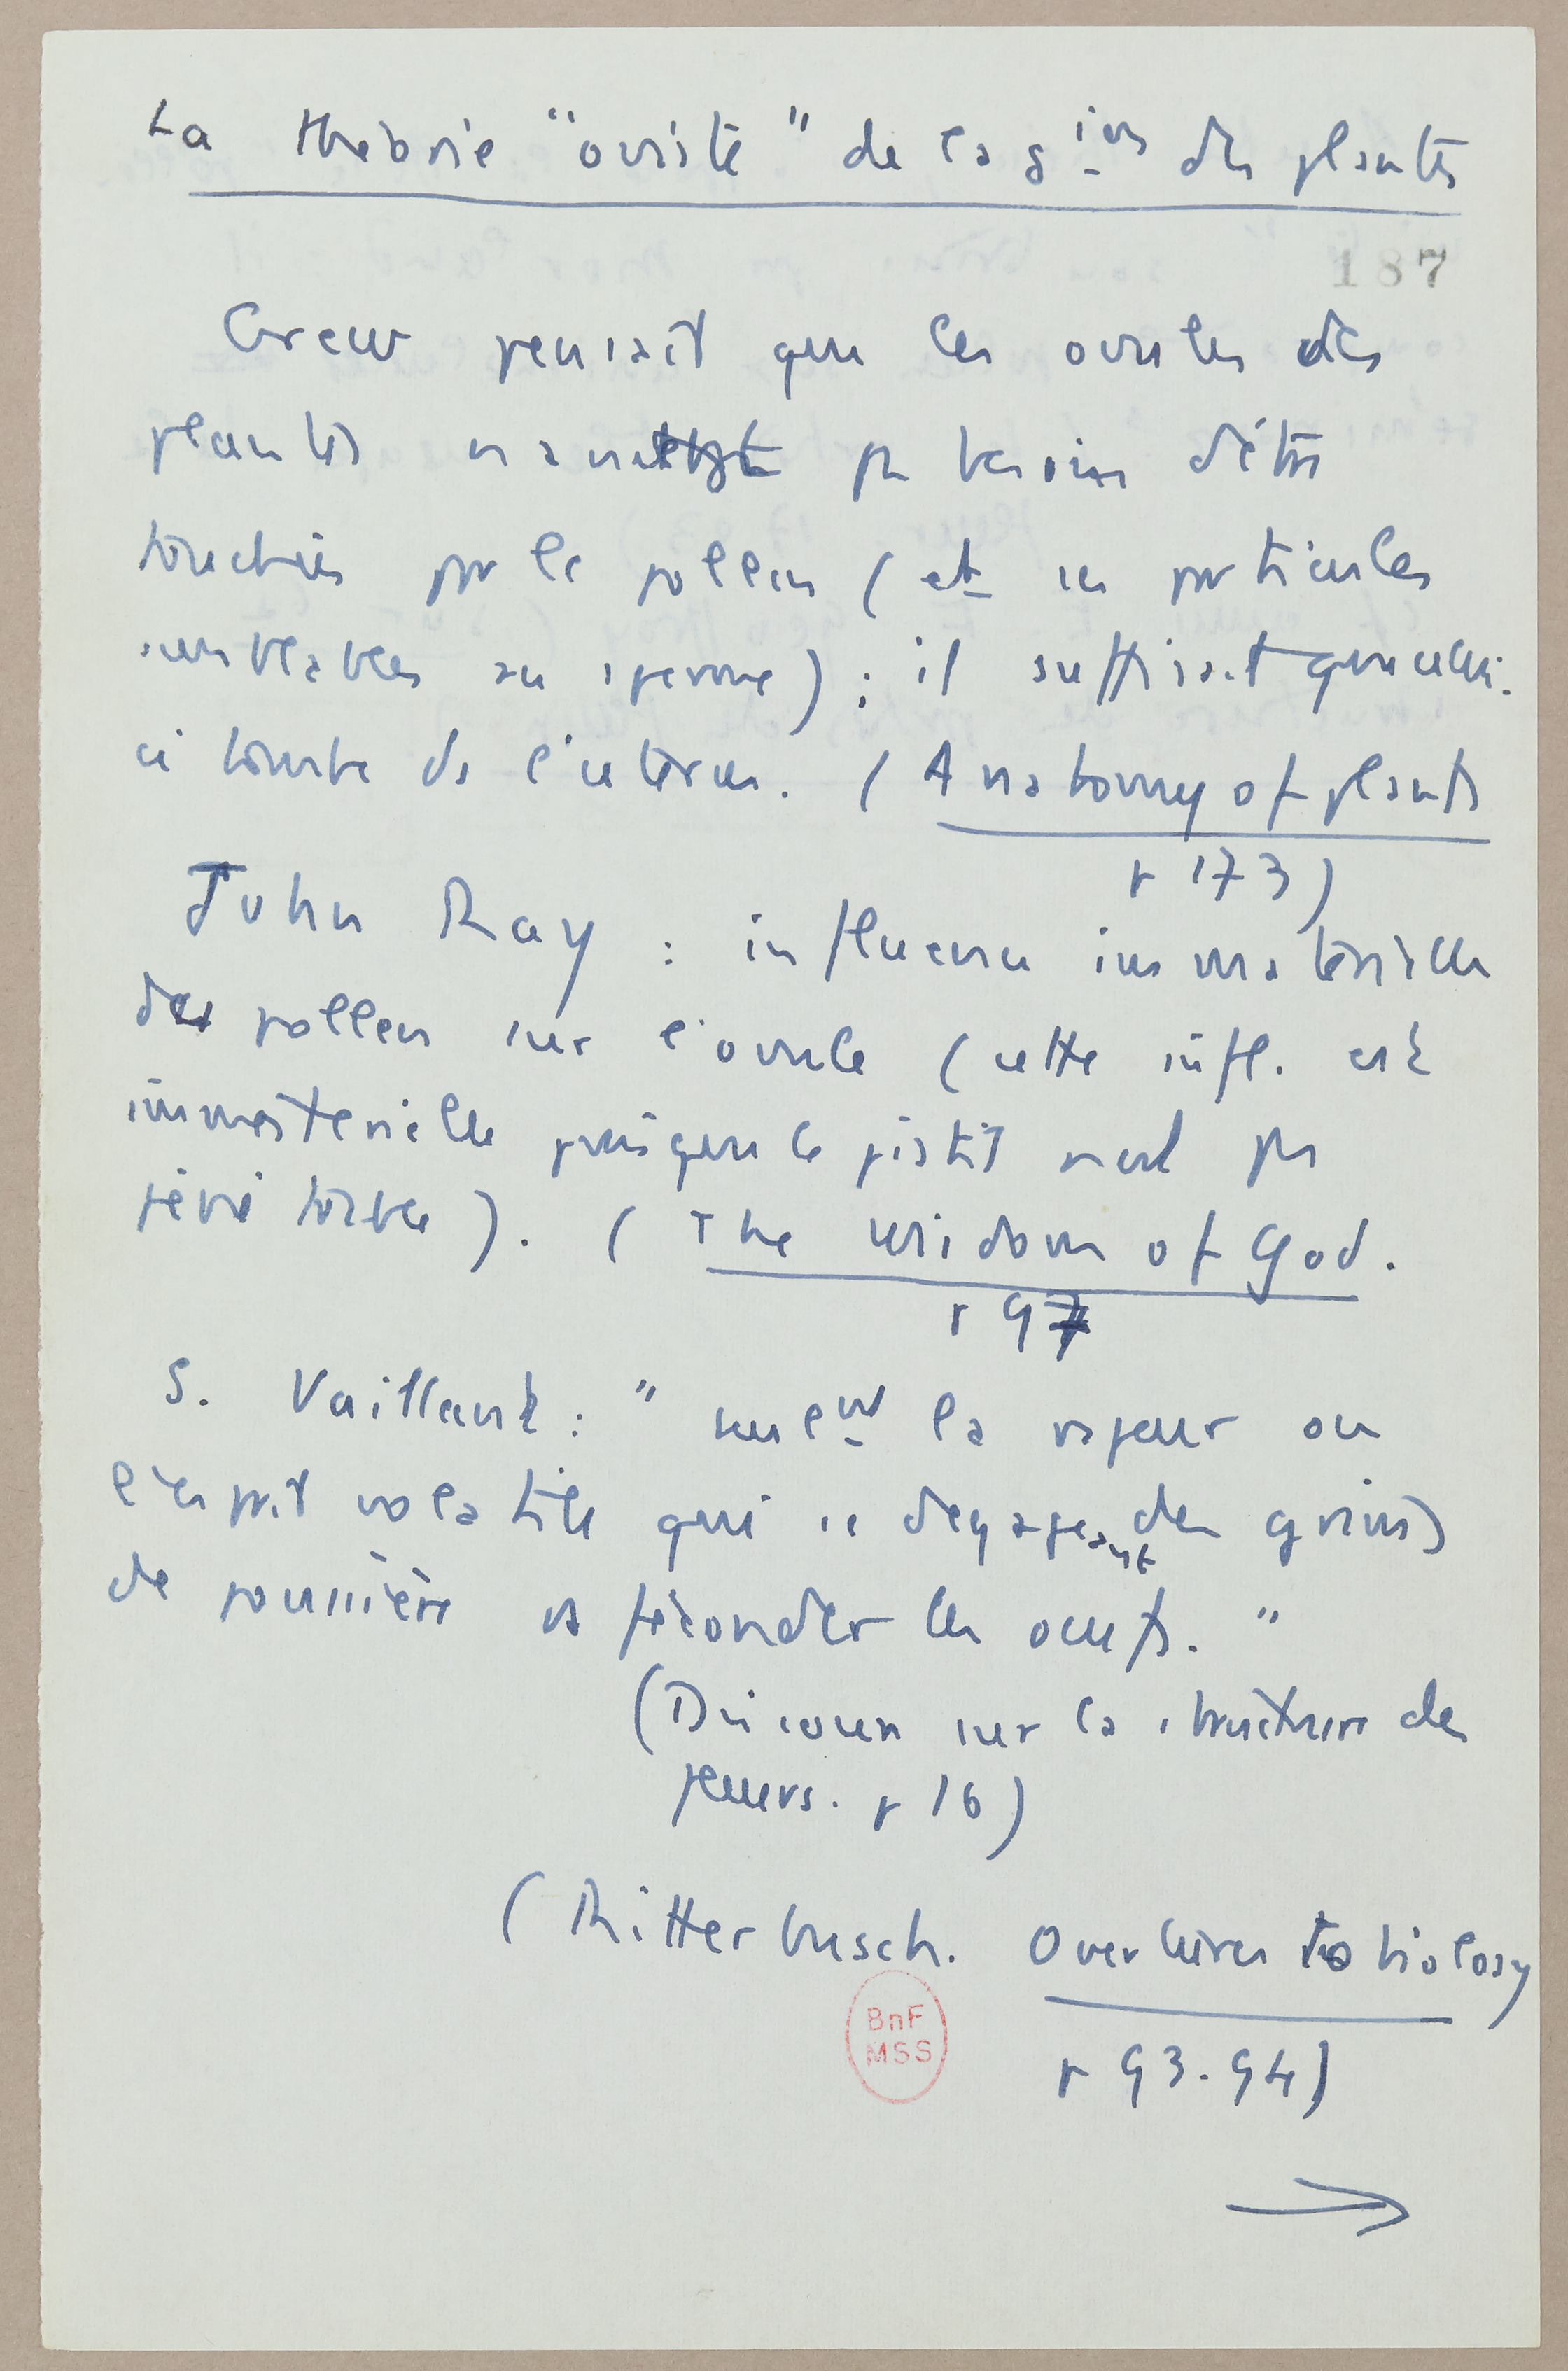 La théorie "oviste" de la g^ion des plantes
187
Grew pensait que les ovules des
plantes n'avait pas besoin d'être
touchés par le pollen (et ses particules
semblables au sperme) ; il suffisait que celui-
ci tombe ds l'uterus. (Anatomy of plants
p 173)
John Ray : influence immatérielle
du pollen sur l'ovule (cette infl. est
immatérielle puisque le pistil n'est pas
pénétrable). (The wisdom of God.
p 97
S. Vaillant : " seulemt la vapeur ou
l'esprit volatile qui se dégageant des grains
de poussière va féconder les oeufs. "
(Discours sur la structure des
fleurs. p 16)
(Ritterbusch. Overtures to biology
p 93.94)
→
BnF
MSS